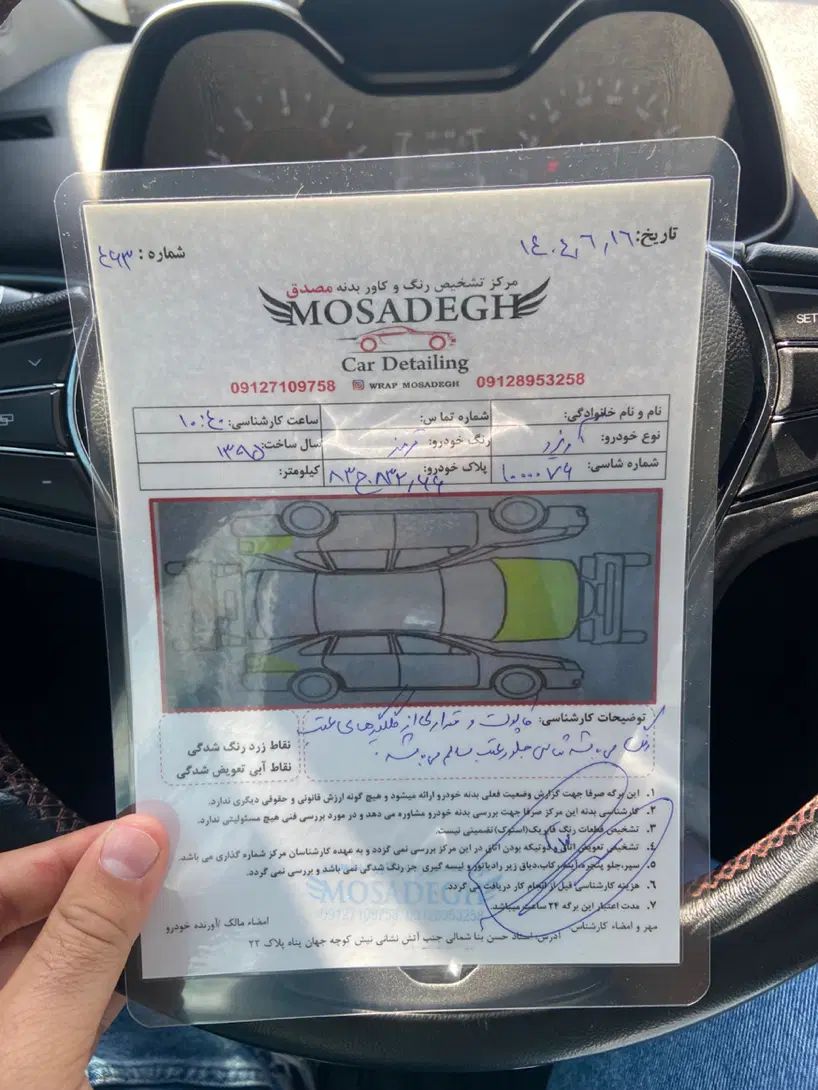 تاریخ: ۱۴۰۴,۶,۱۶
شماره : ۴۶۳
مرکز تشخیص رنگ و کاور بدنه مصدق
MOSADEGH
Car Detailing
09127109758 WRAP MOSADEGH 09128953258
نام و نام خانوادگی: شماره تماس: ساعت کارشناسی: ۱۰:۴۰
نوع خودرو: رنگ خودرو: قرمز سال ساخت: ۱۳۹۵
شماره شاسی: ۱۰۰۰۰۷۶ پلاک خودرو: کیلومتر:
توضیحات کارشناسی: کاپوت و مقداری از گلگیرهای عقب
رنگ می باشد شاسی جلو و عقب سالم می باشد.
نقاط زرد رنگ شدگی
نقاط آبی تعویض شدگی
۱. این برگه صرفا جهت گزارش وضعیت فعلی بدنه خودرو ارائه میشود و هیچ گونه ارزش قانونی و حقوقی دیگری ندارد.
۲. کارشناسی بدنه این مرکز صرفا جهت بررسی بدنه خودرو مشاوره می دهد و در مورد بررسی فنی هیچ مسئولیتی ندارد.
۳. تشخیص قطعات رنگ فابریک(استوک) تضمینی نیست.
۴. تشخیص تعویض اتاق و دوتیکه بودن اتاق در این مرکز بررسی نمی گردد و به عهده کارشناسان مرکز شماره گذاری می باشد.
۵. سپر،جلو پنجره،آینه،رکاب،دیاق زیر رادیاتور و لیسه گیری جز رنگ شدگی نمی باشد و بررسی نمی گردد.
۶. هزینه کارشناسی قبل از انجام کار دریافت می گردد.
۷. مدت اعتبار این برگه ۲۴ ساعت میباشد.
MOSADEGH
09127109758 09128953258
مهر و امضاء کارشناس امضاء مالک /آورنده خودرو
آدرس: استاد حسن بنا شمالی جنب آتش نشانی نبش کوچه جهان پناه پلاک ۲۲
SET